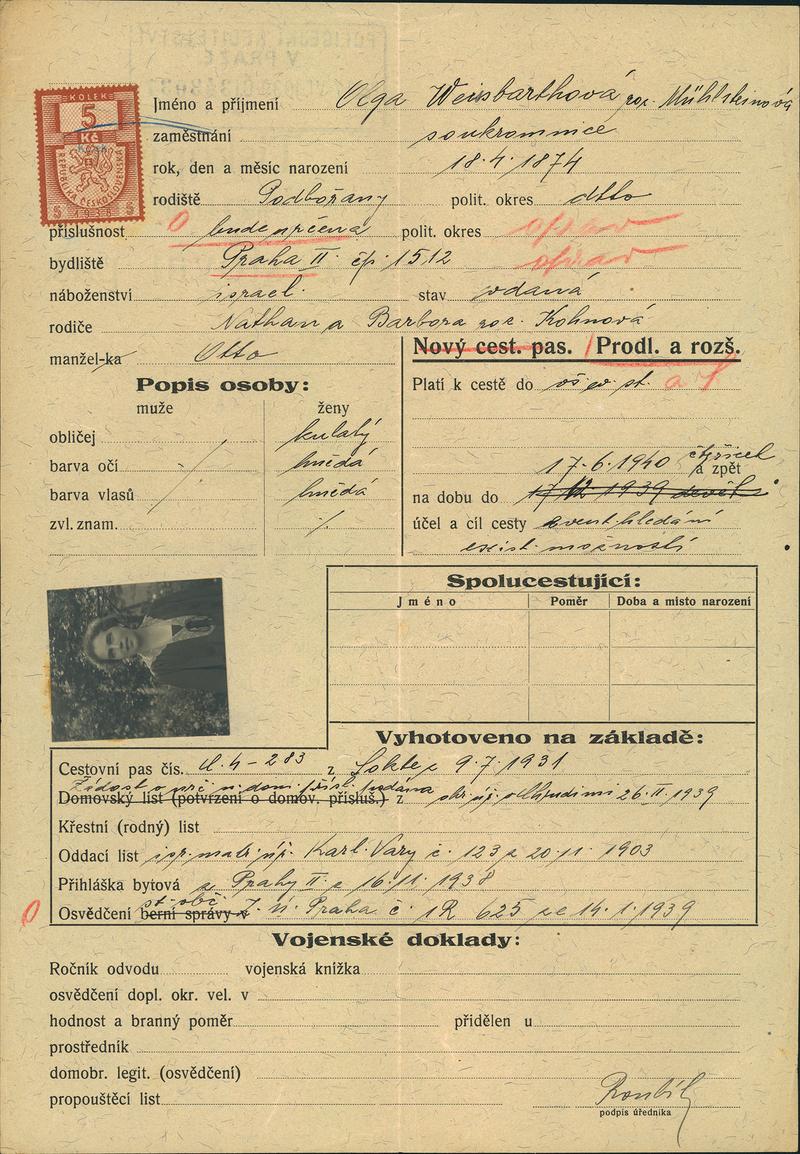 KOLEK
5
Kč
REPUBLIKA ČESKOSLOVENSKÁ
5 1938 5
Jméno a příjmení Olga Weissbarthová roz. Mühlsteinová
zaměstnání soukromnice
rok, den a měsíc narození 18.4.1874
rodiště Podbořany polit. okres dtto
příslušnost 0 bude určena polit. okres
bydliště Praha II čp. 1512
náboženství israel. stav vdaná
rodiče Nathan a Barbora roz. Kohnová
manžel-ka Otto
Nový cest. pas. / Prodl. a rozš.
Popis osoby:
muže ženy
obličej kulatý
barva očí hnědá
barva vlasů hnědá
zvl. znam. %
Platí k cestě do
17.6.1940 čtyřicet
a zpět
na dobu do 17. 12. 1939
účel a cíl cesty event. hledání
exist. možností
Spolucestující:
Jméno Poměr Doba a místo narození
Vyhotoveno na základě:
Cestovní pas čís. 4-283 z Lokte z 9.7.1931
Žádost o podána
Domovský list (potvrzení o domov. přísluš.) z 26.II.1939
Křestní (rodný) list
Oddací list isr. matr. úř. Karl. Vary č. 123 z 20.11.1903
Přihláška bytová z Prahy II z 16.11.1938
st. obč.
0 Osvědčení berní správy z Praha č. 1R 625 ze 14.1.1939
Vojenské doklady:
Ročník odvodu vojenská knížka
osvědčení dopl. okr. vel. v
hodnost a branný poměr přidělen u
prostředník
domobr. legit. (osvědčení)
propouštěcí list
podpis úředníka